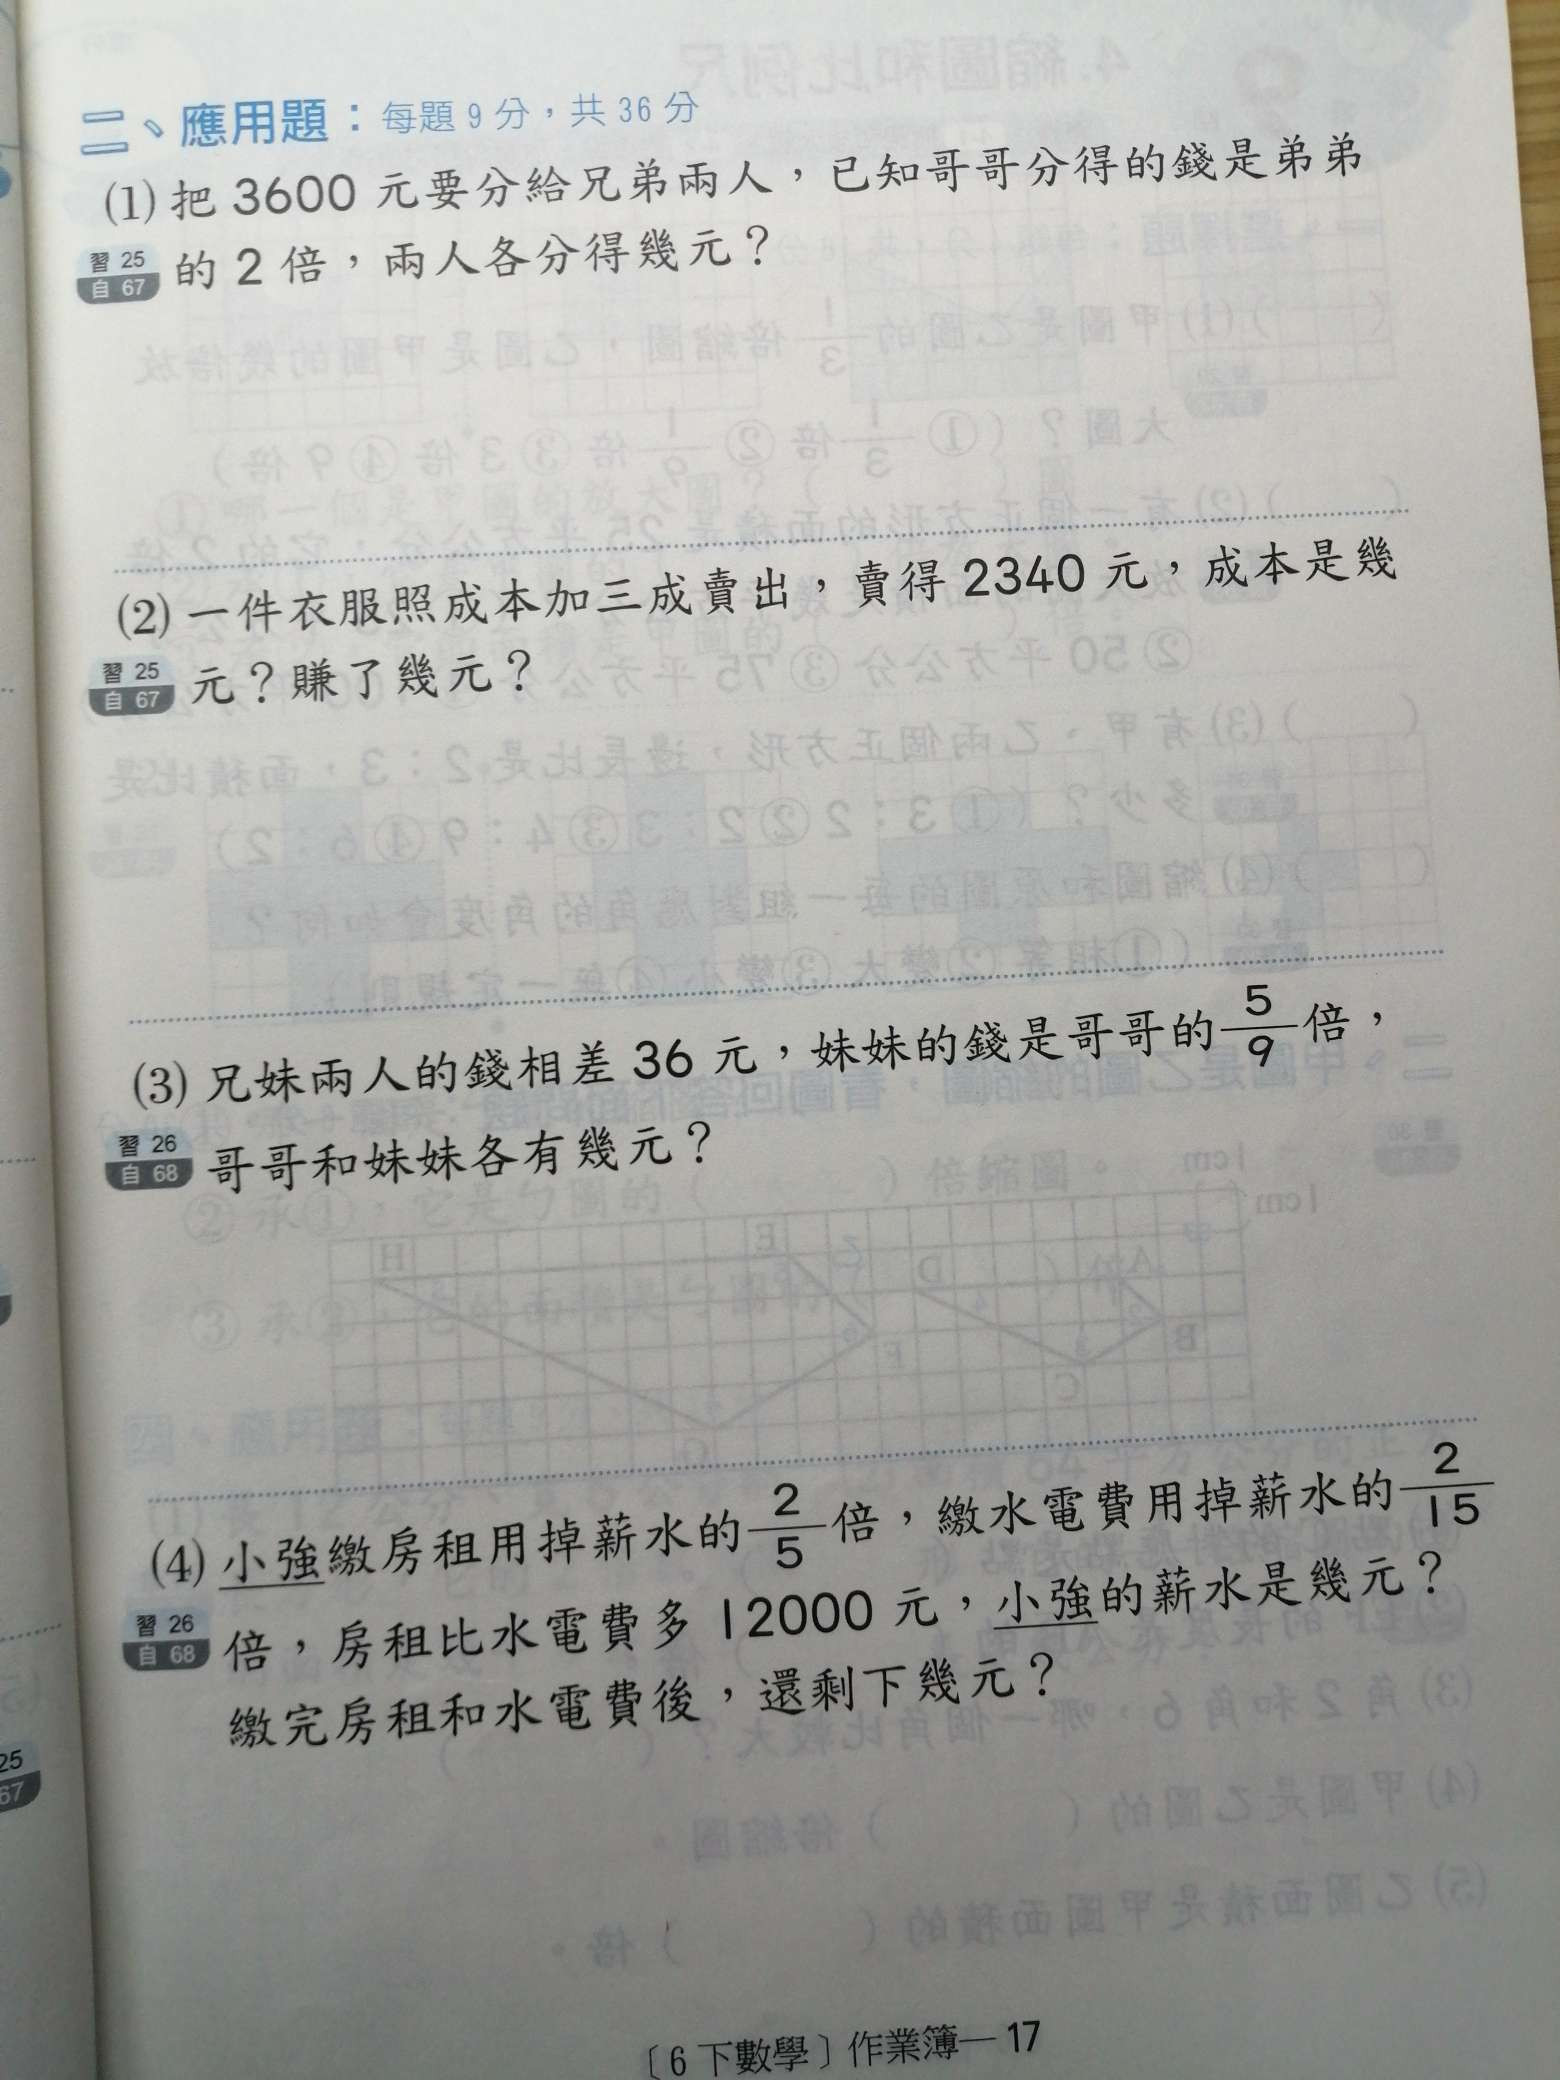 二、應用題：每題 9 分，共 36 分
(1) 把 3600 元要分給兄弟兩人，已知哥哥分得的錢是弟弟
習 25
自 67
的 2 倍，兩人各分得幾元？
(2) 一件衣服照成本加三成賣出，賣得 2340 元，成本是幾
習 25
自 67
元？賺了幾元？
(3) 兄妹兩人的錢相差 36 元，妹妹的錢是哥哥的 5/9 倍，
習 26
自 68
哥哥和妹妹各有幾元？
(4) 小強繳房租用掉薪水的 2/5 倍，繳水電費用掉薪水的 2/15
習 26
自 68
倍，房租比水電費多 12000 元，小強的薪水是幾元？
繳完房租和水電費後，還剩下幾元？
25
67
〔6 下數學〕作業簿—17